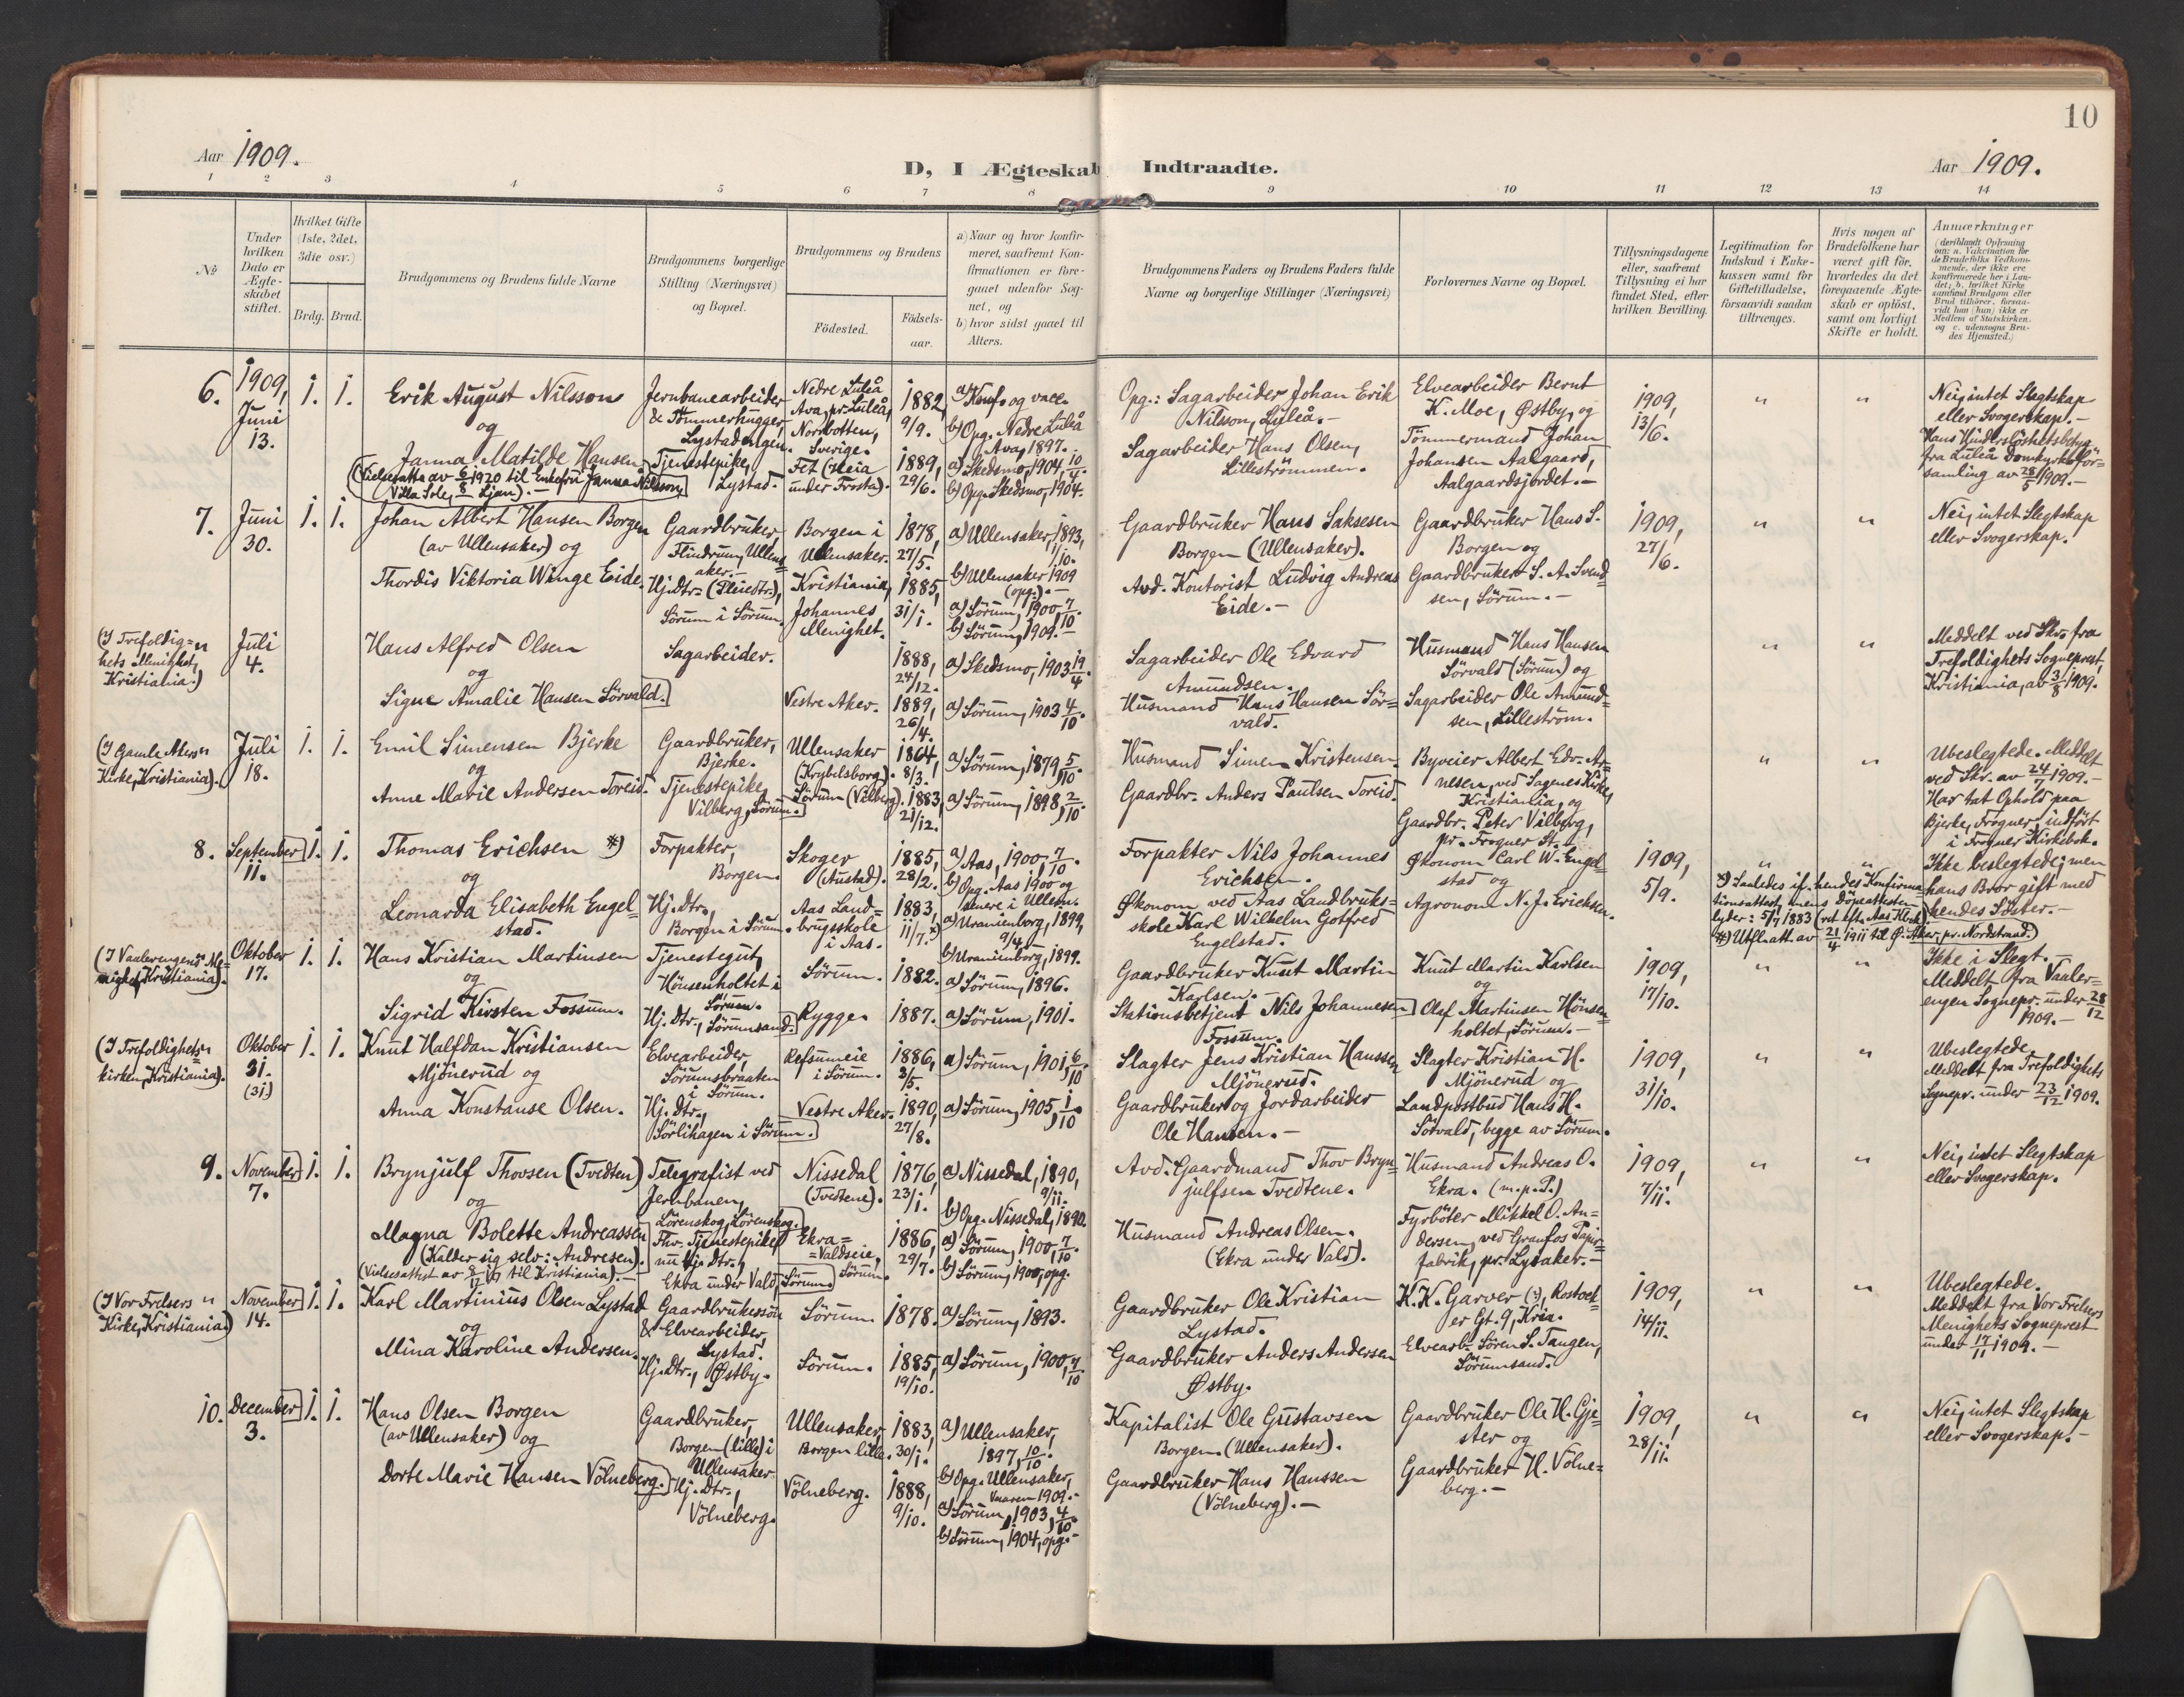 10
Aar 1909.
D, I Ægteskab Indtraadte.
Aar 1909.
1 2 3 4 5 6 7 8 9 10 11 12 13 14
No
Under hvilken Dato er Ægteskabet stiftet.
Hvilket Gifte (1ste, 2det, 3die osv.)
Brdg. Brud.
Brudgommens og Brudens fulde Navne
Brudgommens borgerlige Stilling (Næringsvei) og Bopæl.
Brudgommens og Brudens
Födested.
Födselsaar.
a) Naar og hvor konfirmeret, saafremt Konfirmationen er foregaaet udenfor Sognet, og
b) hvor sidst gaaet til Alters.
Brudgommens Faders og Brudens Faders fulde Navne og borgerlige Stillinger (Næringsvei)
Forlovernes Navne og Bopæl.
Tillysningsdagene eller, saafremt Tillysning ei har fundet Sted, efter hvilken Bevilling.
Legitimation for Indskud i Enkekassen samt for Giftetilladelse, forsaavidt saadan tiltrænges.
Hvis nogen af Brudefolkene har været gift för, hvorledes da det foregaaende Ægteskab er oplöst, samt om lovligt Skifte er holdt.
Anmærkninger
(deriblandt Oplysning om: a. Vakcination for de Brudefolks Vedkommende, der ikke ere konfirmerede her i Landet; b. hvilket Kirkesamfund Brudgom eller Brud tilhörer, forsaavidt han (hun) ikke er Medlem af Statskirken. og c. udensogns Brudes Hjemsted.)
6.
1909, Juni 13.
1. 1.
Erik August Nilsson
og
Janna Matilde Hansen
(Vielsesatta av 6/8 1920 til Enkefru Janna Nilsson, Villa Sole, Ljan). -
Jernbanearbeider & Tömmerhugger, Lystadengen.
Tjenestepike, Lystad.
Nedre Luleå Ava, pr. Luleå, Norrbotten, Sverige.
Fet (Heia under Frosta).
1882, 9/9.
1889, 29/6.
a) Konf. og vacc.
b) Opg. Nedre Luleå Ava, 1897.
a) Skedsmo, 1904, 10/4.
b) Opg. Skedsmo, 1904.
Opg.: Sagarbeider Johan Erik Nilsson, Luleå. -
Sagarbeider Hans Olsen, Lilleströmmen.
Elvearbeider Bernt K. Moe, Østby, og Tömmermand Johan Johansen Aalgaard, Aalgaardsjordet. -
1909, 13/6.
"
"
Nei, intet Slegtskap eller Svogerskap. -
Hans Hinderslöshetsbetyg fra Luleå Domkyrkoförsamling av 28/5 1909. -
7.
Juni 30.
1. 1.
Johan Albert Hansen Borgen
(av Ullensaker) og
Thordis Viktoria Winge Eide.
Gaardbruker, Flindrum, Ullensaker. -
Hj. Dtr. (Pleiedtr.), Sörum i Sörum.
Borgen i Ullensaker.
Kristiania, Johannes Menighet.
1878, 27/5.
1885, 31/1.
a) Ullensaker, 1893, 1/10.
b) Ullensaker 1909 (opg.). -
a) Sörum, 1900 7/10.
b) Sörum, 1909. -
Gaardbruker Hans Saksesen Borgen (Ullensaker).
Avd. Kontorist Ludvig Andreas Eide. -
Gaardbruker Hans S. Borgen og
Gaardbruker S. A. Svendsen, Sörum. -
1909, 27/6.
"
"
Nei, intet Slegtskap eller Svogerskap.
(I Trefoldighets Menighet, Kristiania.)
"
Juli 4.
Hans Alfred Olsen
og
Signe Amalie Hansen Sörvald.
Sagarbeider.
Vestre Aker.
1888, 24/12.
1889, 26/4.
a) Skedsmo, 1903 19/4.
a) Sörum, 1903 4/10.
Sagarbeider Ole Edvard Amundsen.
Husmand Hans Hansen Sörvald.
Husmand Hans Hansen Sörvald (Sörum) og
Sagarbeider Ole Amundsen, Lilleström.
"
"
Meddelt ved Skr. fra Trefoldighets Sogneprest, Kristiania, av 3/8 1909.
(I Gamle Akers Kirke, Kristiania).
"
Juli 18.
1. 1.
Emil Simensen Bjerke
og
Anne Marie Andersen Toreid.
Gaardbruker, Bjerke.
Tjenestepike, Vilberg, Sörum.
Ullensaker (Krybelsborg).
Sörum (Vilberg).
1864, 8/3.
1883, 21/12.
a) Sörum, 1879 5/10.
a) Sörum, 1898 2/10.
Husmand Simen Kristensen.
Gaardbr. Anders Paulsen Toreid.
Byveier Albert Edv. Arnesen, ved Sagenes Kirke, Kristiania, og
Gaardbr. Peter Vilberg, pr. Frogner St.
"
"
Ubeslegtede. Meddelt ved Skr. av 24/7 1909. -
Har tat Ophold paa Bjerke, Frogner, indfört i Frogner Kirkebok.
8.
September 11.
1. 1.
Thomas Erichsen *)
og
Leonarda Elisabeth Engelstad.
Forpakter, Borgen.
Hj. Dtr., Borgen i Sörum.
Skoger (Austad).
Aas Landbrugsskole i Aas.
1885, 28/2.
1883, 11/7. *)
a) Aas, 1900 7/10.
b) Opg. Aas 1900 og senere i Ullens.
a) Uranienborg, 1899, 9/4.
b) Uranienborg, 1899.
Forpakter Nils Johannes Erichsen.
Økonom ved Aas Landbruksskole Karl Wilhelm Gotfred Engelstad.
Økonom Carl W. Engelstad og
Agronom N. J. Erichsen.
1909, 5/9.
"
"
*) Saaledes if. hendes Konfirmationsattest, mens Döpeattesten lyder: 5/7 1883 (ret eft. Aas Kbok).
*) Utfl.att. av 21/4 1911 til Ø. Aker, pr. Nordstrand.)
Ikke beslegtede; men hans Bror gift med hendes Söster. -
(I Vaalerengens Menighet, Kristiania).
"
Oktober 17.
1. 1.
Hans Kristian Martinsen
og
Sigrid Kirsten Fossum.
Tjenestegut, Hönsenholtet i Sörum.
Hj. Dtr., Sörumsand.
Sörum.
Rygge.
1882.
1887.
a) Sörum, 1896.
a) Sörum, 1901.
Gaardbruker Knut Martin Karlsen. -
Stationsbetjent Nils Johannesen Fossum.
Knut Martin Karlsen
og
Olaf Martinsen Hönsenholtet, Sörum. -
1909, 17/10.
"
"
Ikke i Slegt. -
Meddelt fra Vaalerengen Sognepr. under 28/12 1909. -
(I Trefoldighetskirken, Kristiania).
"
Oktober 31.
(31)
1. 1.
Knut Halfdan Kristiansen Mjönerud og
Anna Konstanse Olsen.
Elvearbeider, Sörumsbraaten i Sörum.
Hj. Dtr., Sörlihagen i Sörum.
Refsumeie i Sörum.
Vestre Aker.
1886, 3/5.
1890, 27/8.
a) Sörum, 1901 6/10.
a) Sörum, 1905, 1/10
Slagter Jens Kristian Hanssen Mjönerud.
Gaardbruker og Jordarbeider Ole Hansen. -
Slagter Kristian H. Mjönerud og
Landpostbud Hans H. Sörvald, begge av Sörum.
1909, 31/10.
"
"
Ubeslegtede.
Meddelt fra Trefoldighets Sognepr. under 23/12 1909.
9.
November 7.
1. 1.
Brynjulf Thovsen (Tvedten)
og
Magna Bolette Andreassen
(Kalder sig selv: Andresen).
(Vielsesattest av 8/12 17 til Kristiania). -
Telegrafist ved Jernbanen, Lörenskog, Lörenskog.
Fhv. Tjenestepike, nu Hj. Dtr., Ekra under Vald, Sörum.
Nissedal (Tvedtene).
Ekra = Valdseie, Sörum.
1876, 23/1.
1886, 29/7.
a) Nissedal, 1890, 9/11.
b) Opg. Nissedal, 1890.
a) Sörum, 1900 7/10.
b) Sörum, 1900, opg.
Avd. Gaardmand Thov Brynjulfsen Tvedtene.
Husmand Andreas Olsen.
(Ekra under Vald).
Husmand Andreas O. Ekra. (m. p. P.)
Fyrböter Mikkel O. Andersen, ved Granfos Papirfabrik, pr. Lysaker. -
1909, 7/11.
"
"
Nei, intet Slegtskap eller Svogerskap.
(I Vor Frelsers Kirke, Kristiania.)
"
November 14.
1. 1.
Karl Martinius Olsen Lystad
og
Mina Karoline Andersen.
Gaardbrukersön & Elvearbeider, Lystad.
Hj. Dtr., Østby.
Sörum.
Sörum.
1878.
1885, 19/10.
a) Sörum, 1893.
a) Sörum, 1900, 7/10
Gaardbruker Ole Kristian Lystad.
Gaardbruker Anders Andersen Østby.
K. K. Garver (?), Rostocker Gt. 9, Kria.
Elvearb. Sören S. Tangen, Sörumsand.
1909, 14/11.
"
"
Ubeslegtede.
Meddelt fra Vor Frelsers Menighets Sogneprest under 17/11 1909. -
10.
December 3.
1. 1.
Hans Olsen Borgen
(av Ullensaker) og
Dorte Marie Hansen Völneberg.
Gaardbruker, Borgen (lille) i Ullensaker.
Hj. Dtr., Völneberg.
Ullensaker, Borgen lille.
Völneberg.
1883, 30/1.
1888, 9/10.
a) Ullensaker, 1897, 10/10.
b) Opg. Ullensaker, Vaaren 1909. -
a) Sörum, 1903, 4/10
b) Sörum, 1904, opg. -
Kapitalist Ole Gustavsen Borgen. (Ullensaker).
Gaardbruker Hans Hanssen (Völneberg). -
Gaardbruker Ole H. Gjester og
Gaardbruker H. Völneberg. -
1909, 28/11.
"
"
Nei, intet Slegtskap eller Svogerskap. -